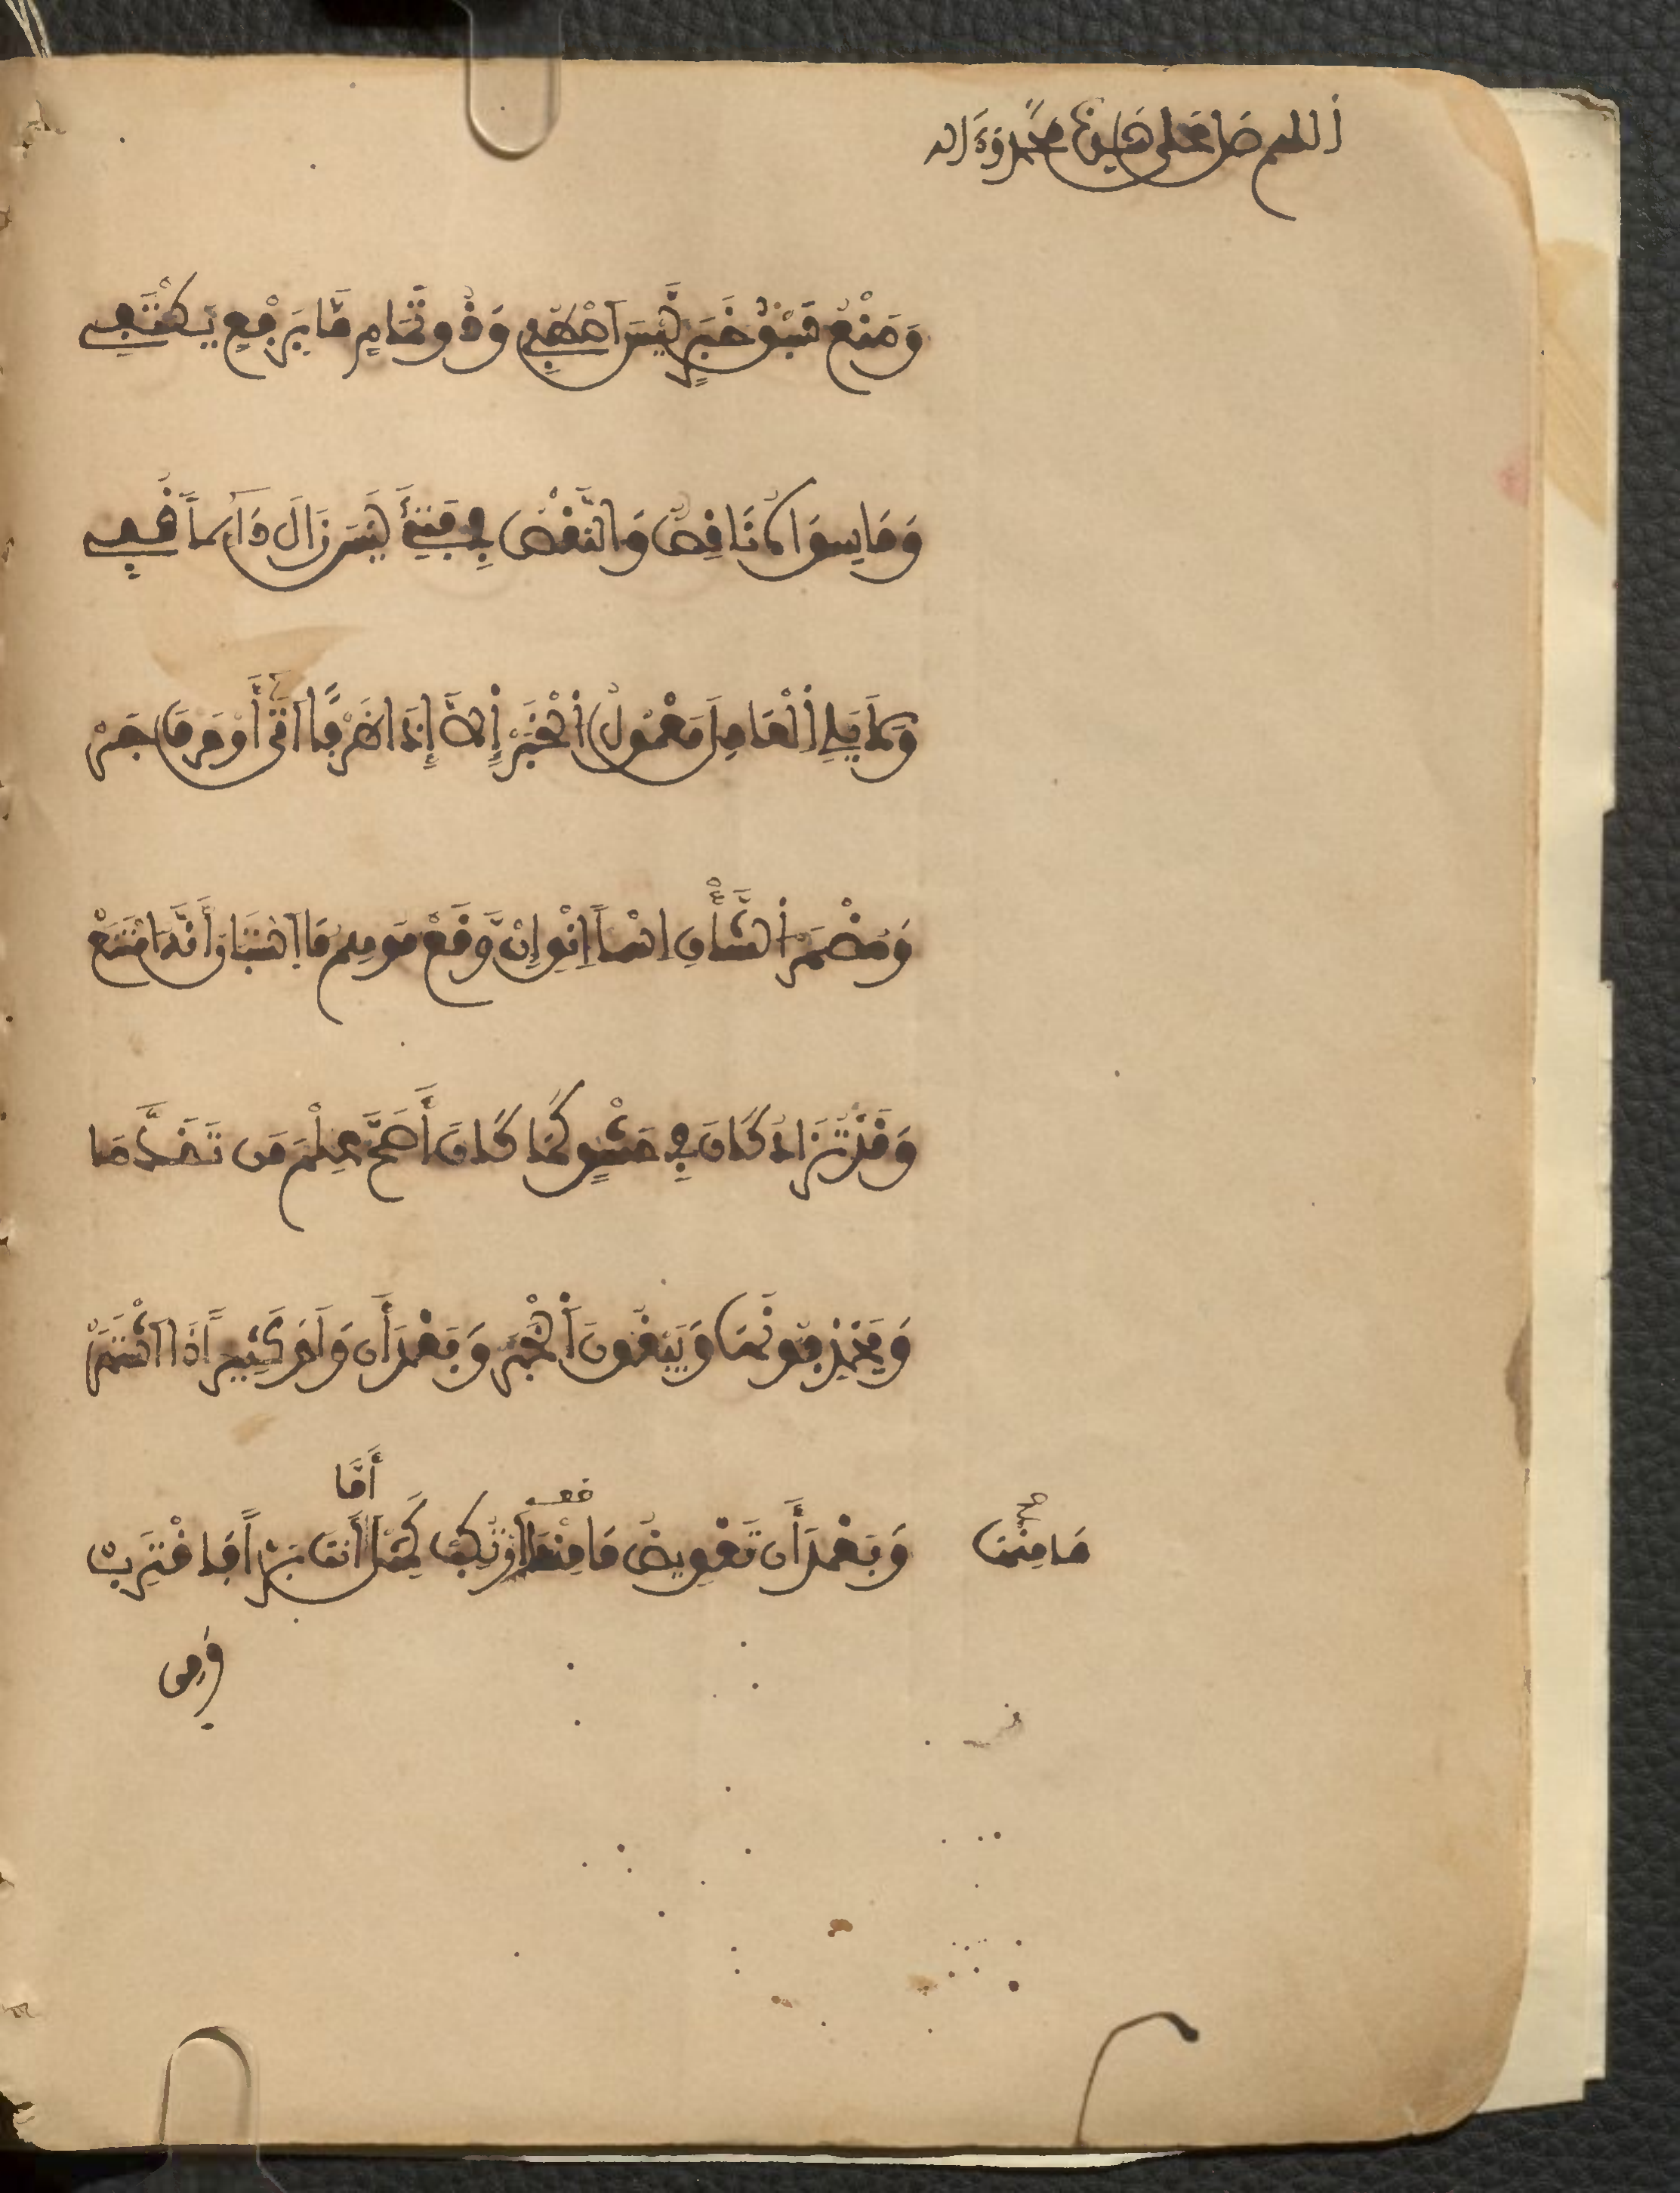 اللهم صل على سيدنا محمد وءاله
وَمَنْعُ سَبْقِ خَبَرٍ لَّيْسَ اصْطُفِي وَذُو تَمَامٍ مَّا بِرَفْعٍ يَكْتَفِي
وَمَا سِوَاهُ نَاقِصٌ وَالنَّقْصُ فِي فَتِئَ لَيْسَ زَالَ دَآئِماً قُفِي
وَلَا يَلِي الْعَامِلَ مَعْمُولُ الْخَبَرْ إِلَّا إِذَا ظَرْفاً اتَى أَوْ حَرْفَ جَرْ
وَمُضْمَرَ الشَّأْنِ اسْماً انْوِ إِنْ وَّقَعْ مُوهِمُ مَا اسْتَبَانَ أَنَّهُ امْتَنَعْ
وَقَدْ تُزَادُ كَانَ فِي حَشْوٍ كَمَا كَانَ أَصَحَّ عِلْمَ مَن تَقَدَّمَا
وَيَحْذِفُونَهَا وَيُبْقُونَ الْخَبَرْ وَبَعْدَ أَن وَلَوْ كَثِيراً ذَا اشْتَهَرْ
أَمَّا
مَا مِنْهَا صح
وَبَعْدَ أَن تَعْوِيضُ مَا عَنْهَا ارْتُكِبْ كَمِثْلِ أَنتَ بَرّاً فَاقْتَرِبْ
وَمِن